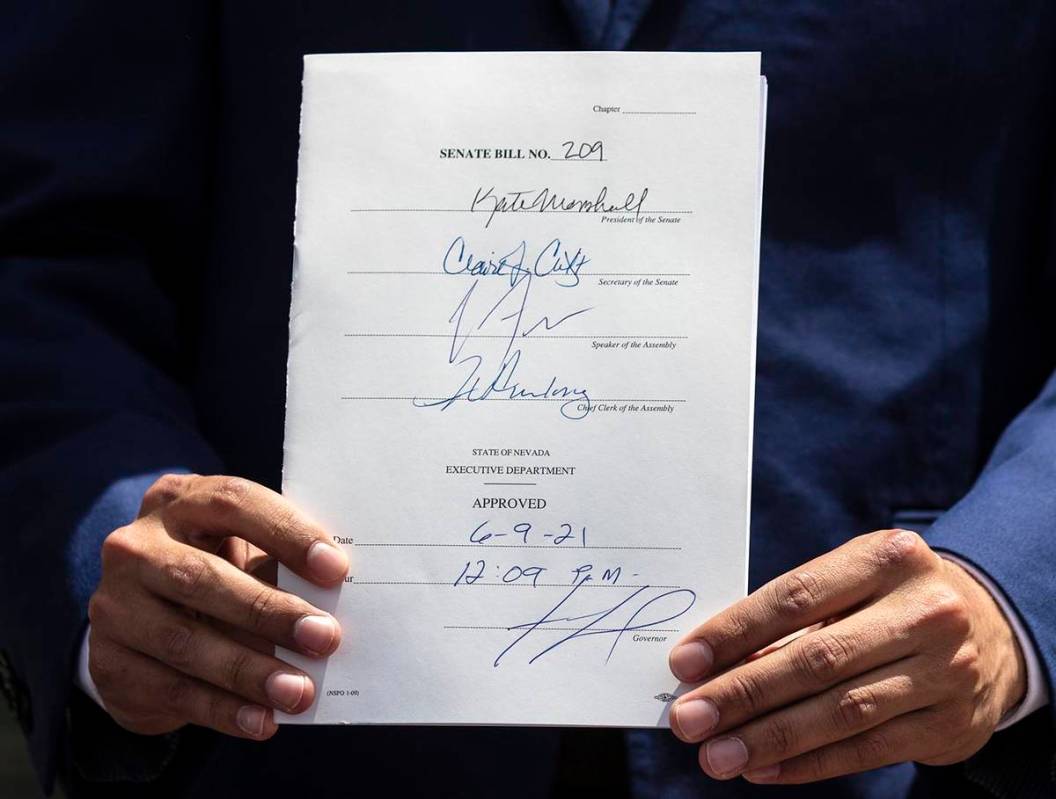 Chapter
SENATE BILL NO. 209
Kate Marshall
President of the Senate
Claire J. Clift
Secretary of the Senate
Speaker of the Assembly
Chief Clerk of the Assembly
STATE OF NEVADA
EXECUTIVE DEPARTMENT
APPROVED
Date 6-9-21
ur 12:09 P.M.
Governor
(NSPO 1-09)